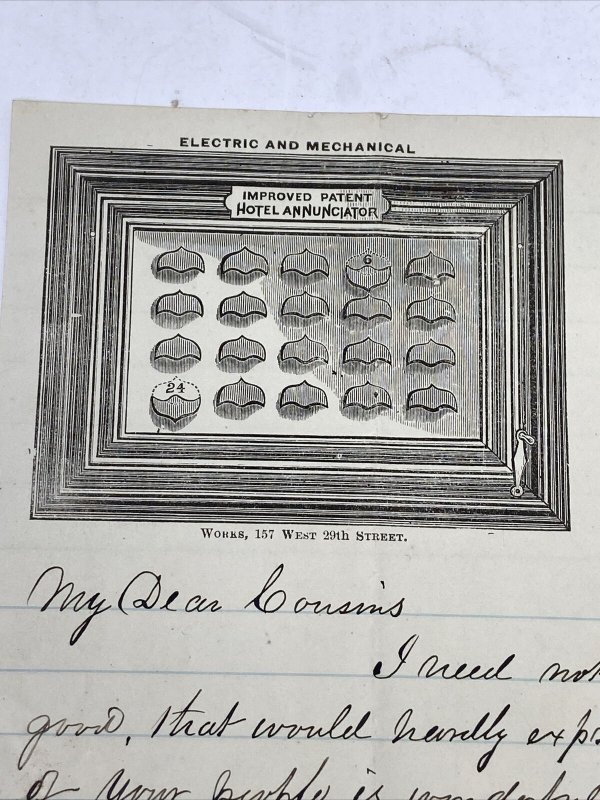 ELECTRIC AND MECHANICAL
IMPROVED PATENT
HOTEL ANNUNCIATOR
6
24
WORKS, 157 WEST 29th STREET.
My Dear Cousins
I need not
good, that would hardly exp
of your people is wonderful